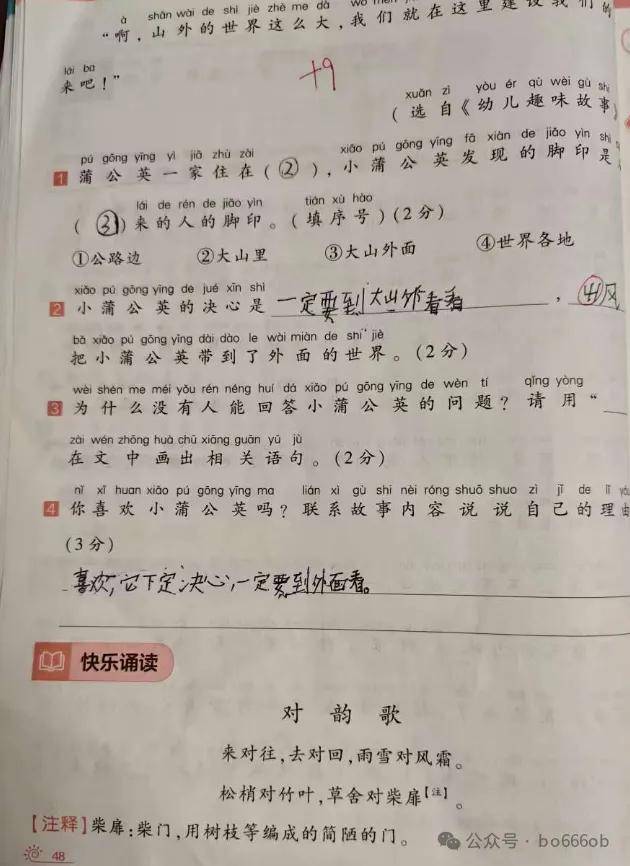 à shān wài de shì jiè zhè me dà
“啊，山外的世界这么大，我们就在这里建设我们的
lái ba
来吧！”
+9
xuǎn zì yòu ér qù wèi gù shi
（选自《幼儿趣味故事
pú gōng yīng yì jiā zhù zài xiǎo pú gōng yīng fā xiàn de jiǎo yìn shì
1 蒲公英一家住在（②），小蒲公英发现的脚印是
lái de rén de jiǎo yìn tián xù hào
（③）来的人的脚印。（填序号）（2分）
①公路边 ②大山里 ③大山外面 ④世界各地
xiǎo pú gōng yīng de jué xīn shì
2 小蒲公英的决心是 一定要到大山外看看，风
bǎ xiǎo pú gōng yīng dài dào le wài miàn de shì jiè
把小蒲公英带到了外面的世界。（2分）
wèi shén me méi yǒu rén néng huí dá xiǎo pú gōng yīng de wèn tí qǐng yòng
3 为什么没有人能回答小蒲公英的问题？请用“
zài wén zhōng huà chū xiāng guān yǔ jù
在文中画出相关语句。（2分）
nǐ xǐ huan xiǎo pú gōng yīng ma lián xì gù shi nèi róng shuō shuo zì jǐ de lǐ yóu
4 你喜欢小蒲公英吗？联系故事内容说说自己的理由
（3分）
喜欢，它下定决心，一定要到外面看。
快乐诵读
对韵歌
来对往，去对回，雨雪对风霜。
松梢对竹叶，草舍对柴扉【注】。
【注释】柴扉：柴门，用树枝等编成的简陋的门。
48
公众号·bo666ob